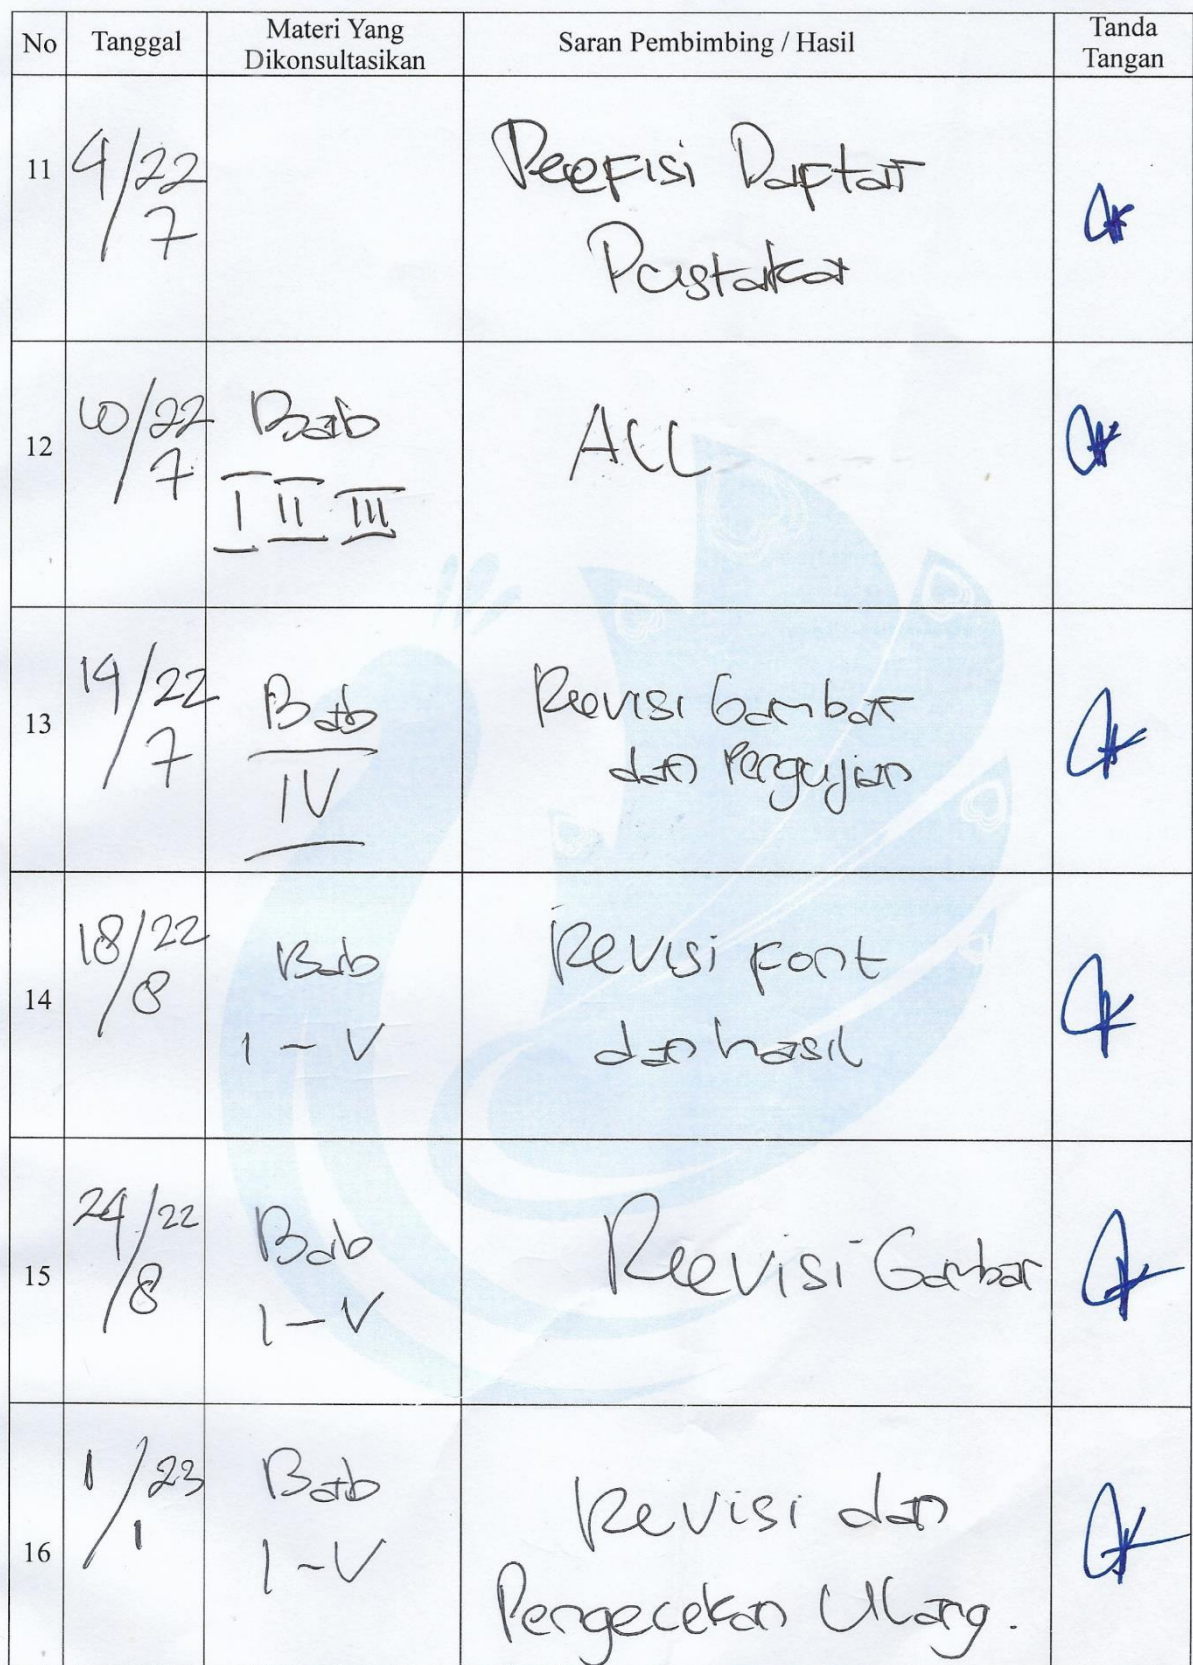 No Tanggal Materi Yang Dikonsultasikan Saran Pembimbing / Hasil Tanda Tangan
11 4/22 Reefisi Daftar
7 Pustaka
12 10/22 Bab ACC
7 I II III
13 14/22 Bab Revisi Gambar
7 IV dan Pengujian
14 18/22 Bab Revisi Font
8 I - V dan hasil
15 24/22 Bab Revisi Gambar
8 I - V
16 1/23 Bab Revisi dan
1 I - V Pengecekan Ulang.